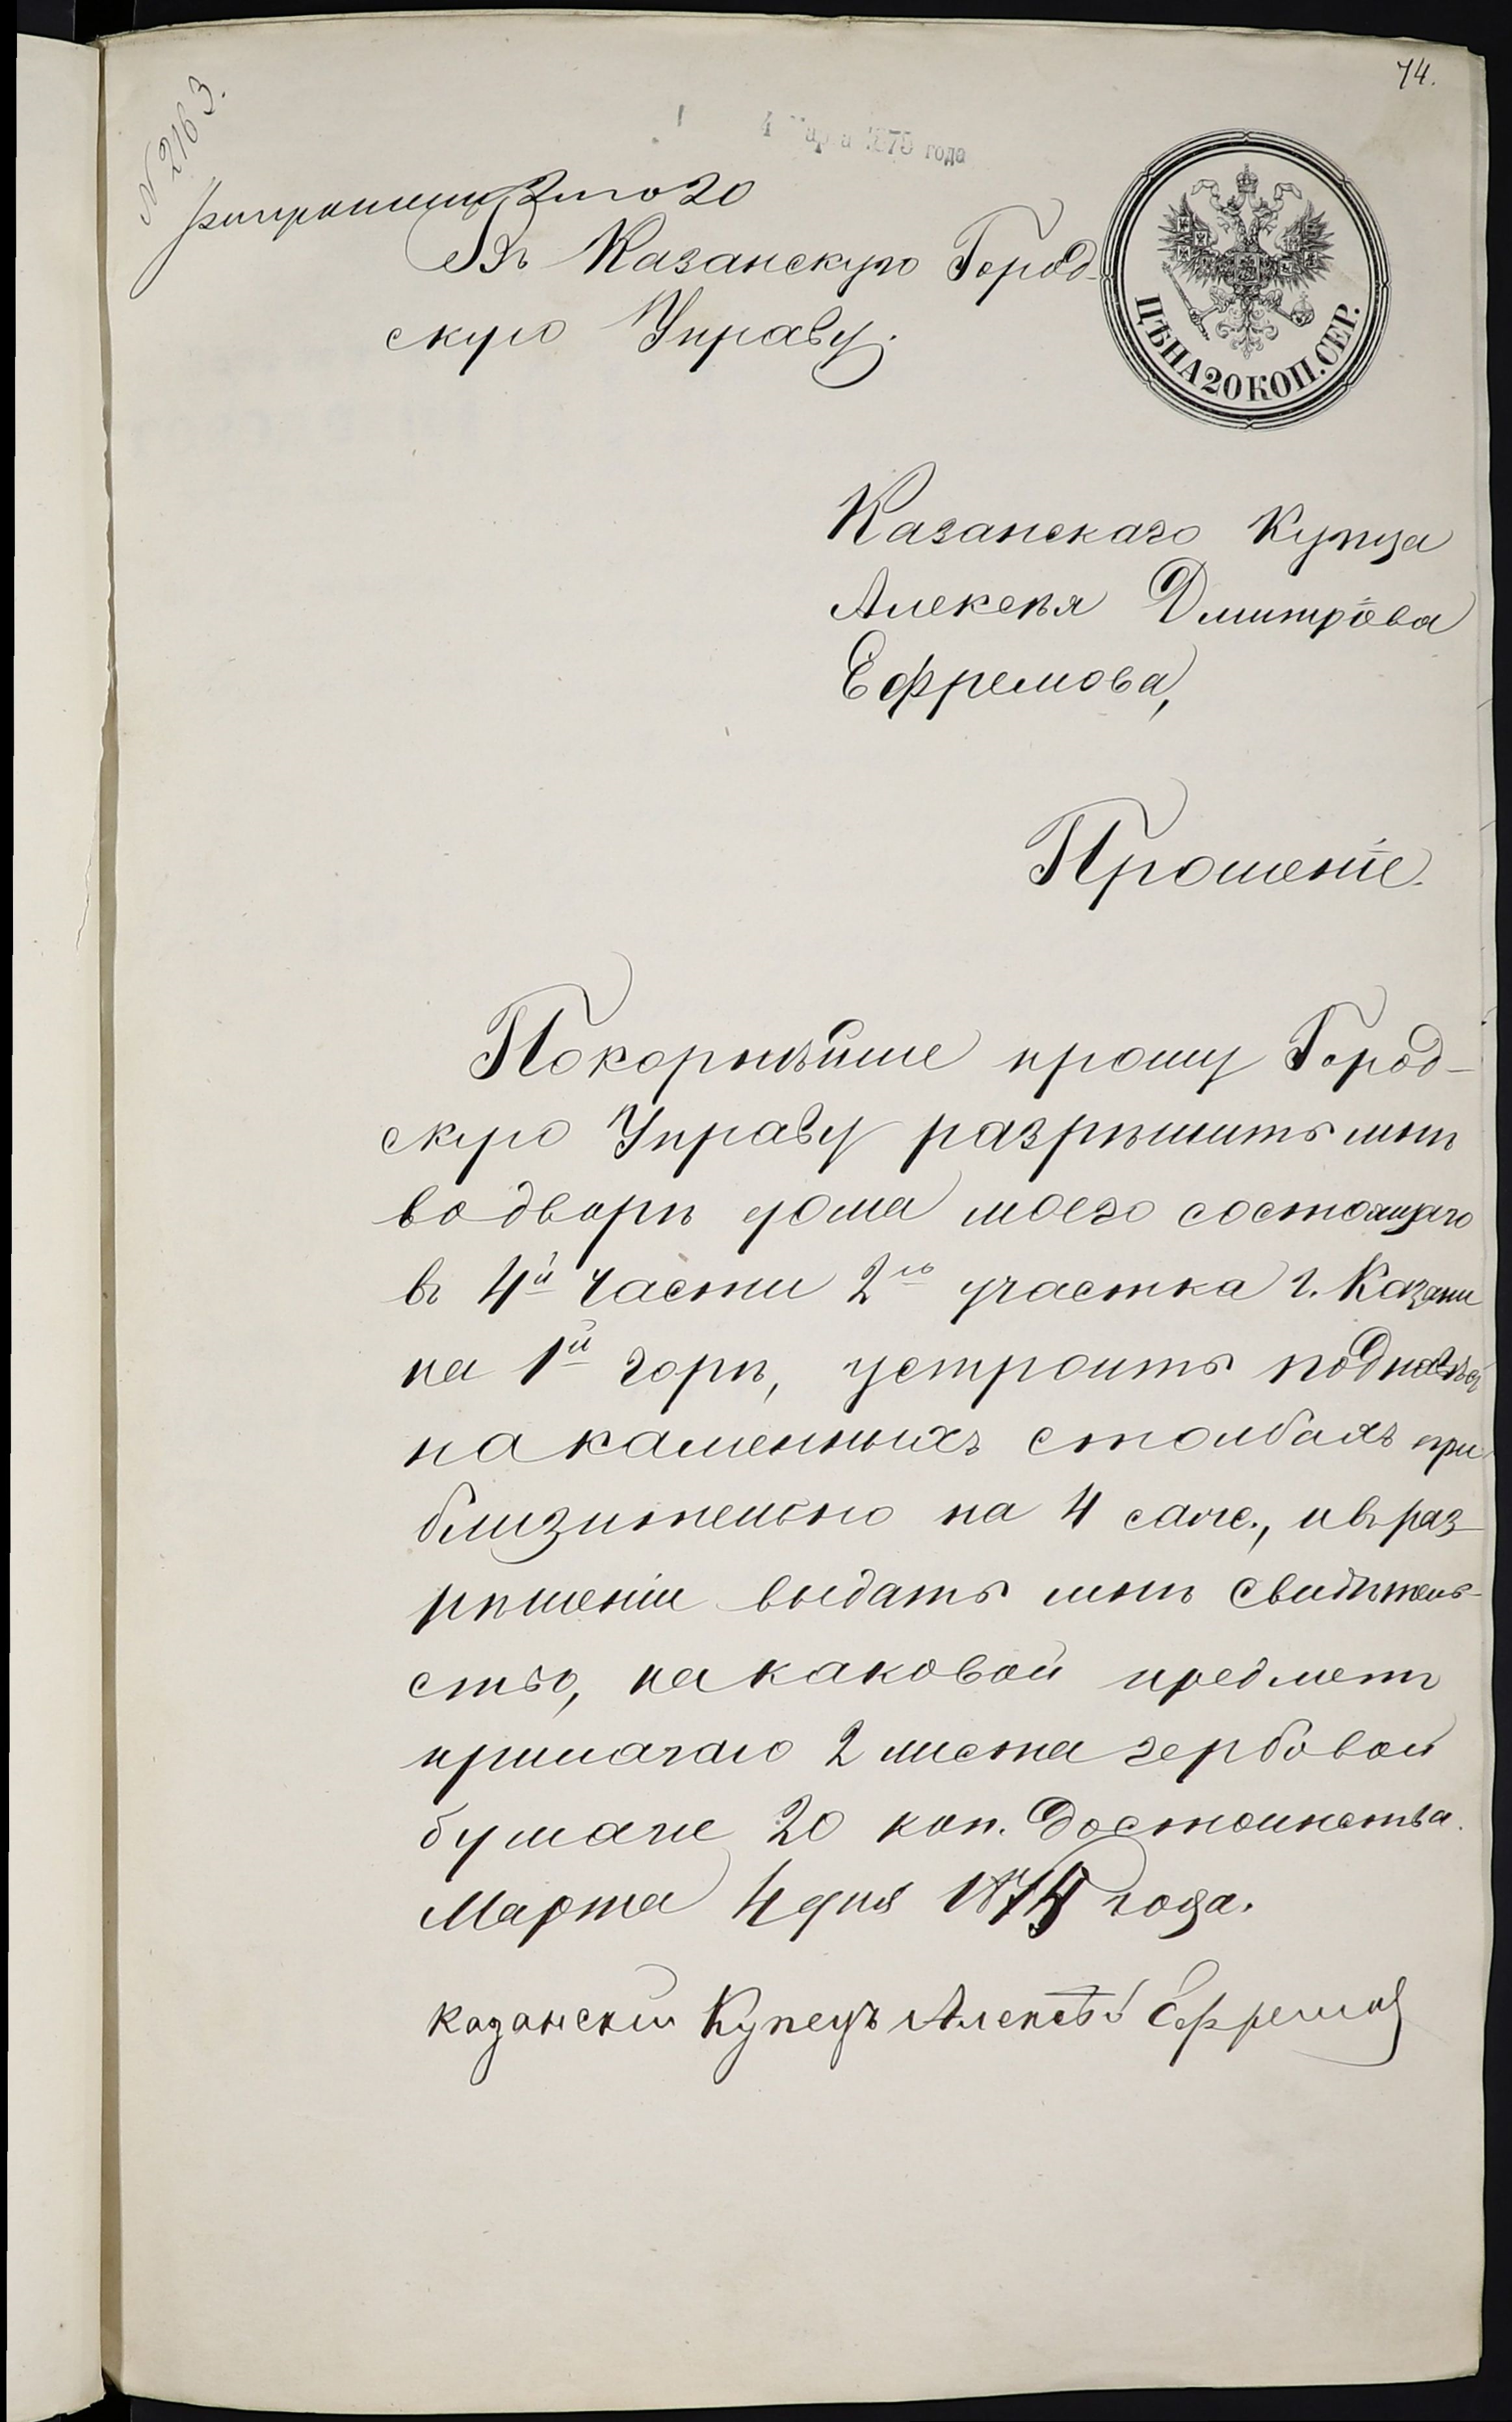 74.
№ 2163.
4 Марта 1875 года
Въ Казанскую Город-
скую Управу.
ЦѢНА 20 КОП. СЕР.
Казанскаго Купца
Алексѣя Дмитріева
Ефремова,
Прошеніе.
Покорнѣйше прошу Город-
скую Управу разрѣшить мнѣ
во дворѣ дома моего состоящаго
въ 4й части 2го участка г. Казани
на 1й горѣ, устроить поднавѣсъ
на каменныхъ столбахъ при
близительно на 4 саж., и въ раз-
рѣшеніи выдать мнѣ свидѣтель-
ство, на каковой предметъ
прилагаю 2 листа гербовой
бумаги 20 коп. достоинства.
Марта 4 дня 1875 года.
Казанскій Купецъ Алексѣй Ефремов